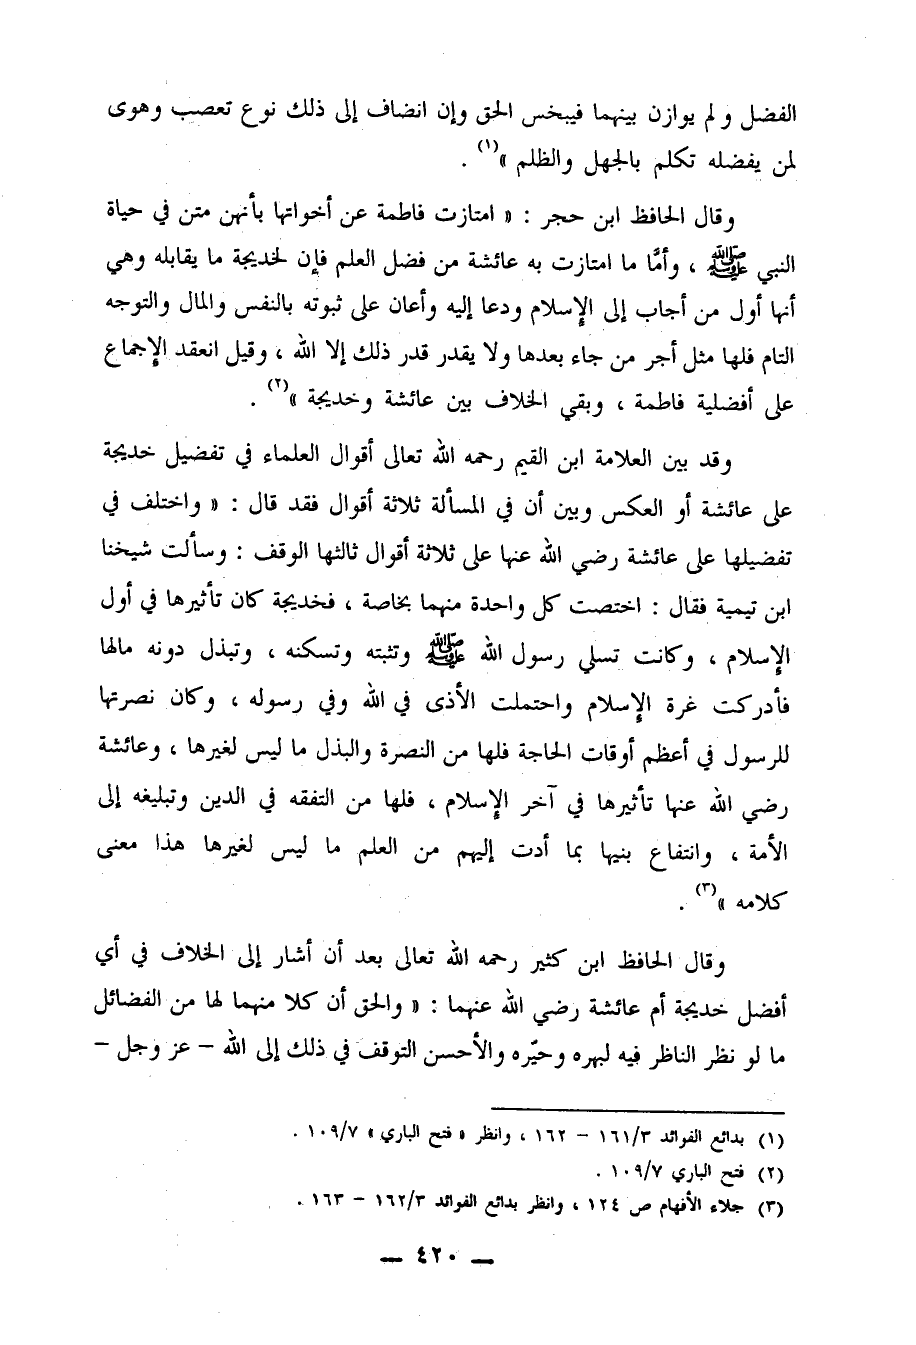 الفضل ولم يوازن بينهما فيبخس الحق وإن انضاف إلى ذلك نوع تعصب وهوى
لمن يفضله تكلم بالجهل والظلم »(١) .
وقال الحافظ ابن حجر : « امتازت فاطمة عن أخواتها بأنهن متن في حياة
النبي ﷺ ، وأمَّا ما امتازت به عائشة من فضل العلم فإن لخديجة ما يقابله وهي
أنها أول من أجاب إلى الإسلام ودعا إليه وأعان على ثبوته بالنفس والمال والتوجه
التام فلها مثل أجر من جاء بعدها ولا يقدر قدر ذلك إلا الله ، وقيل انعقد الإجماع
على أفضلية فاطمة ، وبقي الخلاف بين عائشة وخديجة »(٢) .
وقد بين العلامة ابن القيم رحمه الله تعالى أقوال العلماء في تفضيل خديجة
على عائشة أو العكس وبين أن في المسألة ثلاثة أقوال فقد قال : « واختلف في
تفضيلها على عائشة رضي الله عنها على ثلاثة أقوال ثالثها الوقف : وسألت شيخنا
ابن تيمية فقال : اختصت كل واحدة منهما بخاصة ، فخديجة كان تأثيرها في أول
الإسلام ، وكانت تسلي رسول الله ﷺ وتثبته وتسكنه ، وتبذل دونه مالها
فأدركت غرة الإسلام واحتملت الأذى في الله وفي رسوله ، وكان نصرتها
للرسول في أعظم أوقات الحاجة فلها من النصرة والبذل ما ليس لغيرها ، وعائشة
رضي الله عنها تأثيرها في آخر الإسلام ، فلها من التفقه في الدين وتبليغه إلى
الأمة ، وانتفاع بنيها بما أدت إليهم من العلم ما ليس لغيرها هذا معنى
كلامه »(٣) .
وقال الحافظ ابن كثير رحمه الله تعالى بعد أن أشار إلى الخلاف في أي
أفضل خديجة أم عائشة رضي الله عنهما : « والحق أن كلا منهما لها من الفضائل
ما لو نظر الناظر فيه لبهره وحيّره والأحسن التوقف في ذلك إلى الله – عز وجل –
(١) بدائع الفوائد ١٦١/٣ – ١٦٢ ، وانظر « فتح الباري » ١٠٩/٧ .
(٢) فتح الباري ١٠٩/٧ .
(٣) جلاء الأفهام ص ١٢٤ ، وانظر بدائع الفوائد ١٦٢/٣ – ١٦٣ .
— ٤٢٠ —